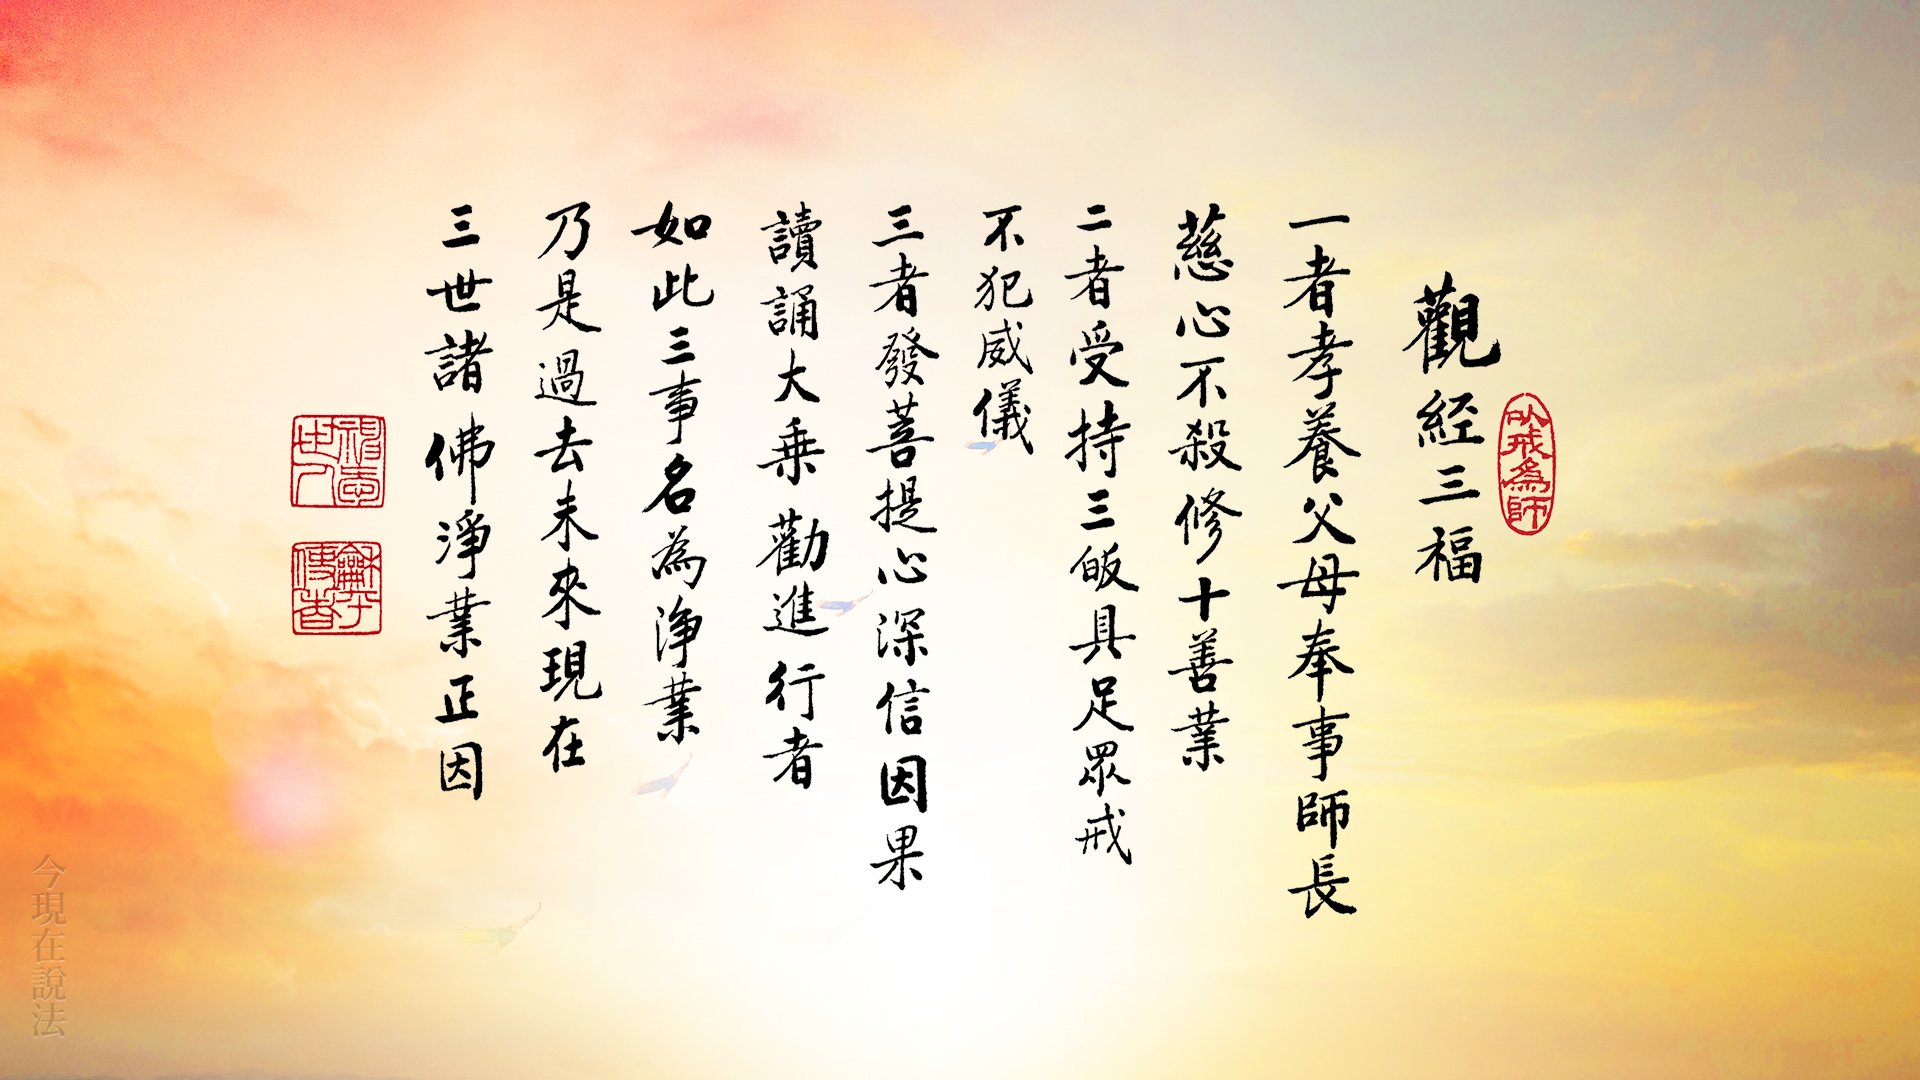 以戒為師
觀經三福
一者孝養父母奉事師長
慈心不殺修十善業
二者受持三皈具足眾戒
不犯威儀
三者發菩提心深信因果
讀誦大乗勸進行者
如此三事名為淨業
乃是過去未來現在
三世諸佛淨業正因
今現在說法